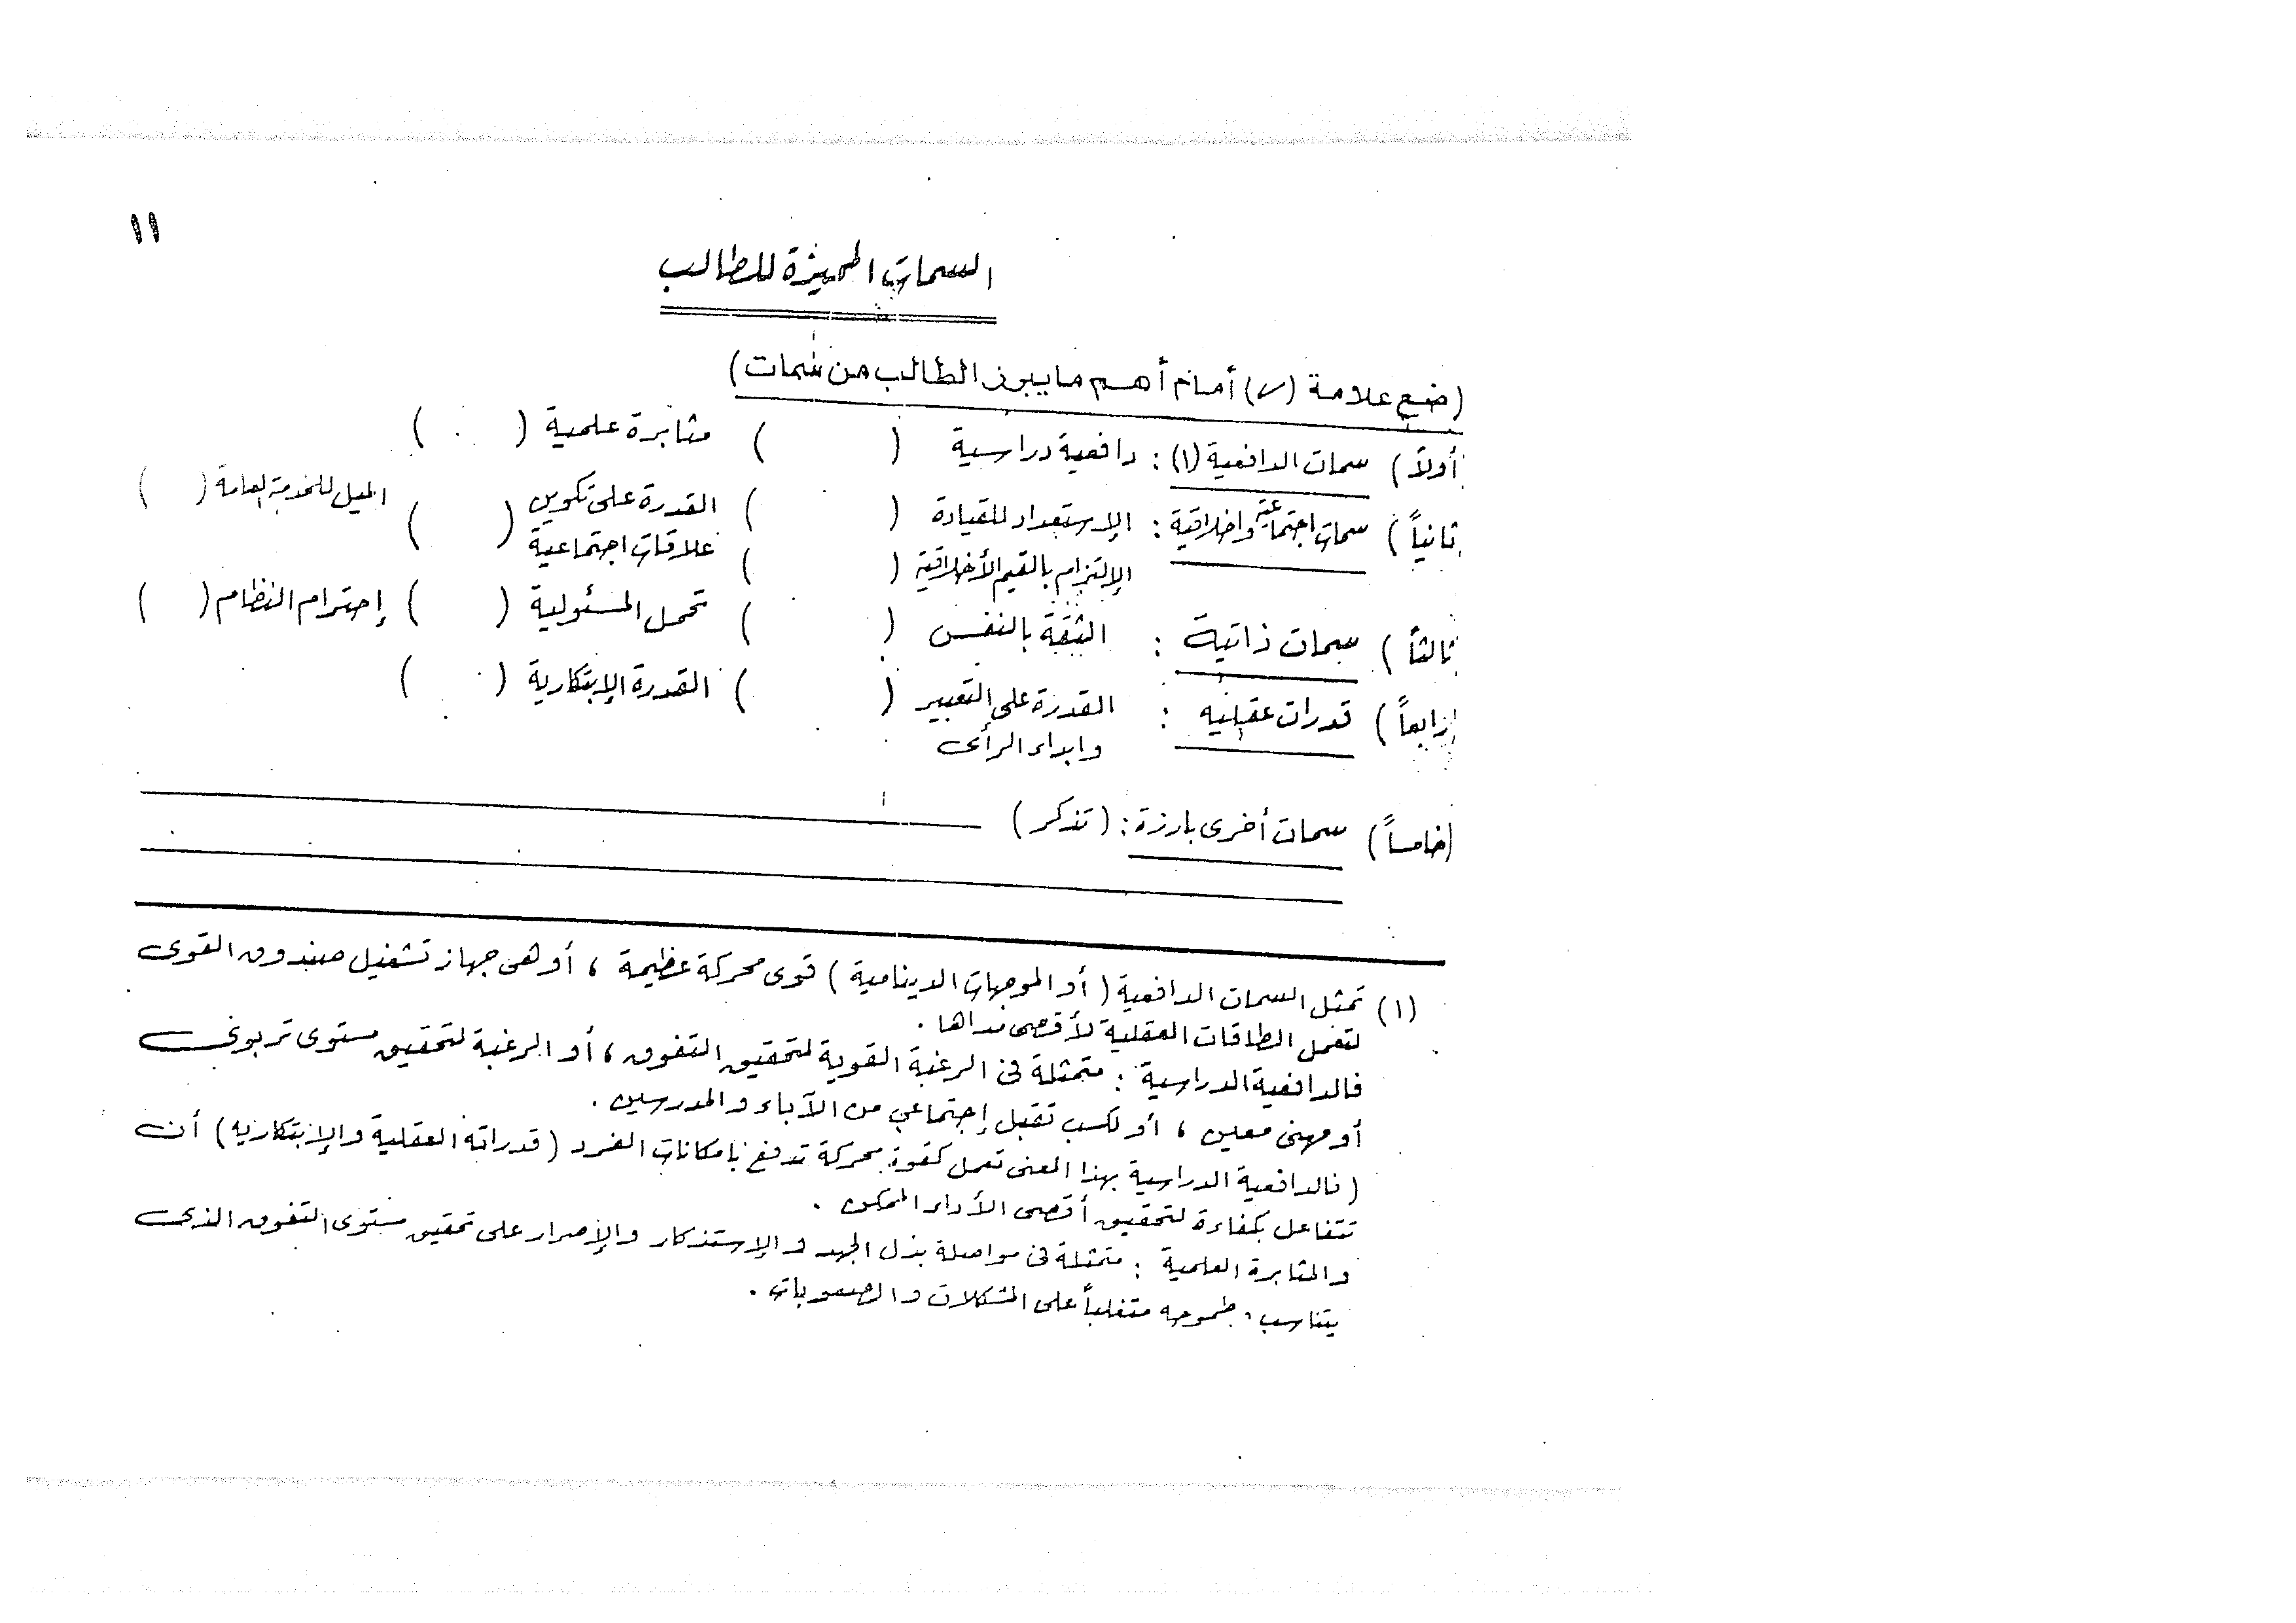 ١١
السمات المميزة للطالب
(ضع علامة (√) أمام أهم ما يبرز الطالب من سمات)
أولاً) سمات الدافعية (١) : دافعية دراسية ( ) مثابرة علمية ( )
ثانياً) سمات اجتماعية واخلاقية : الإستعداد للقيادة ( ) القدرة على تكوين علاقات اجتماعية ( ) الميل للخدمة العامة ( )
الإلتزام بالقيم الأخلاقية ( )
ثالثاً) سمات ذاتية : الثقة بالنفس ( ) تحمل المسئولية ( ) إحترام النظام ( )
رابعاً) قدرات عقليه : القدرة على التعبير ( ) القدرة الإبتكارية ( )
وابداء الرأى
خامساً) سمات أخرى بارزة : (تذكر)
(١) تمثل السمات الدافعية (أو الموجهات الدينامية) قوى محركة عظيمة ، أو هى جهاز تشغيل صندوق القوى
لتعمل الطاقات العقلية لأقصى مداها .
فالدافعية الدراسية : متمثلة فى الرغبة القوية لتحقيق التفوق ، أو الرغبة لتحقيق مستوى تربوى
أو مهنى معين ، أو لكسب تقبل إجتماعي من الآباء والمدرسين .
(فالدافعية الدراسية بهذا المعنى تعمل كقوة محركة تدفع بامكانات الفرد (قدراته العقلية والإبتكاريه) أن
تتفاعل بكفاءة لتحقيق أقصى الأداء الممكن .
والمثابرة العلمية : متمثلة فى مواصلة بذل الجهد والإستذكار والإصرار على تحقيق مستوى التفوق الذى
يتناسب وطموحه متغلباً على المشكلات والصعوبات .